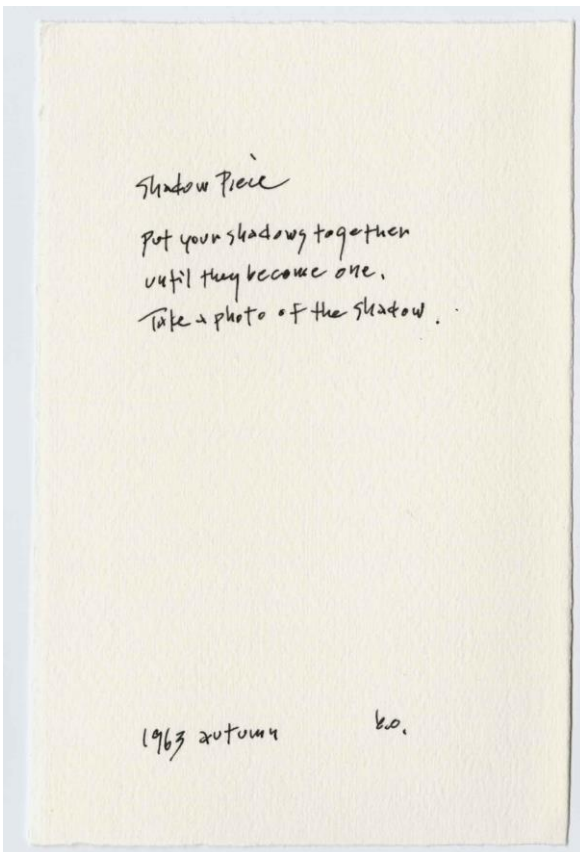 Shadow Piece
Put your shadows together
until they become one.
Take a photo of the shadow.
1963 autumn
y.o.